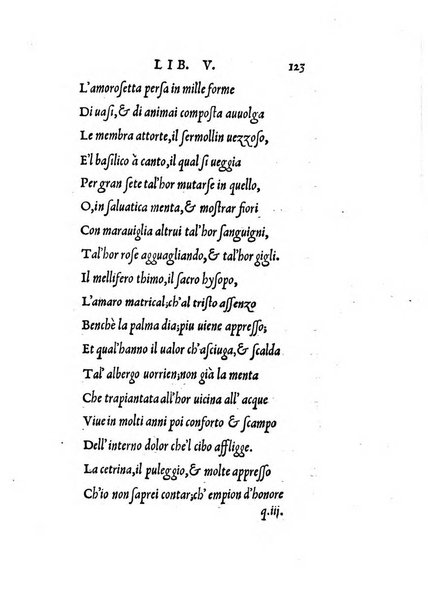 LIB. V. 123
L'amorosetta persa in mille forme
Di uasi, & di animai composta auuolga
Le membra attorte, il sermollin uezzoso,
E'l basilico à canto, il qual si ueggia
Per gran sete tal'hor mutarse in quello,
O, in saluatica menta, & mostrar fiori
Con marauiglia altrui tal'hor sanguigni,
Tal'hor rose agguagliando, & tal'hor gigli.
Il mellifero thimo, il sacro hysopo,
L'amaro matrical; ch'al tristo assenzo
Benchè la palma dia; piu uiene appresso;
Et qual'hanno il ualor ch'asciuga, & scalda
Tal' albergo uorrien; non già la menta
Che trapiantata all'hor uicina all' acque
Viue in molti anni poi conforto & scampo
Dell' interno dolor che'l cibo affligge.
La cetrina, il puleggio, & molte appresso
Ch'io non saprei contar; ch' empion d'honore
q.iij.